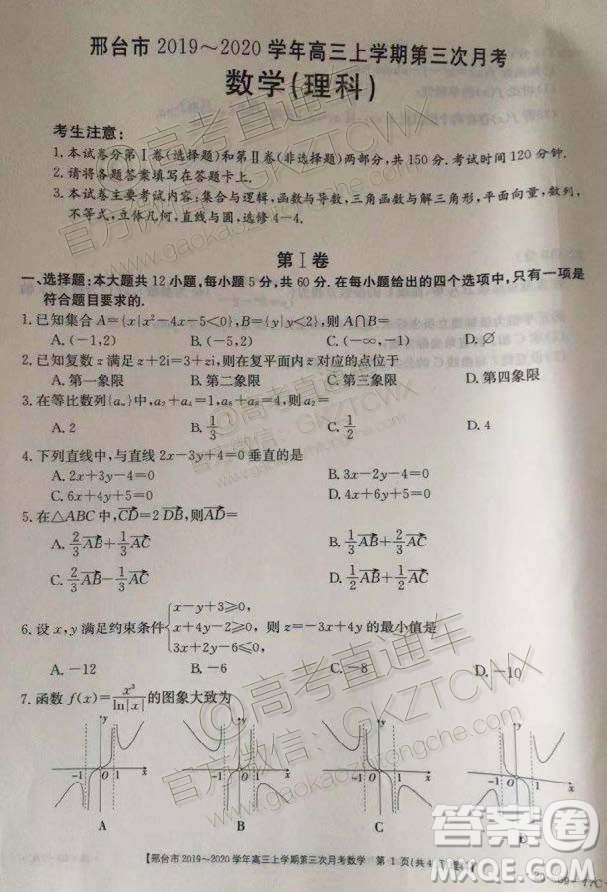 邢台市 2019～2020 学年高三上学期第三次月考
数学(理科)
考生注意:
1. 本试卷分第Ⅰ卷(选择题)和第Ⅱ卷(非选择题)两部分,共 150 分. 考试时间 120 分钟.
2. 请将各题答案填写在答题卡上.
3. 本试卷主要考试内容:集合与逻辑,函数与导数,三角函数与解三角形,平面向量,数列,
不等式,立体几何,直线与圆,选修 4—4.
第Ⅰ卷
一、选择题:本大题共 12 小题,每小题 5 分,共 60 分. 在每小题给出的四个选项中,只有一项是
符合题目要求的.
1. 已知集合 A={x|x²-4x-5<0},B={y|y<2},则 A∩B=
A. (-1,2) B. (-5,2) C. (-∞,5) D. ∅
2. 已知复数 z 满足 z+2i=3+zi,则在复平面内 z 对应的点位于
A. 第一象限 B. 第二象限 C. 第三象限 D. 第四象限
3. 在等比数列{aₙ}中,a₂+a₄=1,a₆+a₈=4,则 a₂=
A. 2 B. 1/3 C. 1/2 D. 4
4. 下列直线中,与直线 2x-3y+4=0 垂直的是
A. 2x+3y-4=0 B. 3x-2y-4=0
C. 6x+4y-7=0 D. 4x+6y+7=0
5. 在△ABC 中,CD=2DB,则AD=
A. 2/3AB+1/3AC B. 1/2AB+1/2AC
C. 2/3AB-1/3AC D. 1/2AB-1/2AC
6. 设 x,y 满足约束条件{x-y+3≥0, x+4y-2≥0, 3x+2y-6≤0, 则 z=-3x+4y 的最小值是
A. -12 B. -6 C. -8 D. -10
7. 函数 f(x)=x³/ln|x| 的图象大致为
-1 O 1 x -1 O 1 x -1 O 1 x -1 O 1 x
A B C
【邢台市 2019～2020 学年高三上学期第三次月考数学 第 1 页(共4
@高考直通车
官方微信:GKZTCWX
www.gaokaozhitongche.com
答案圈